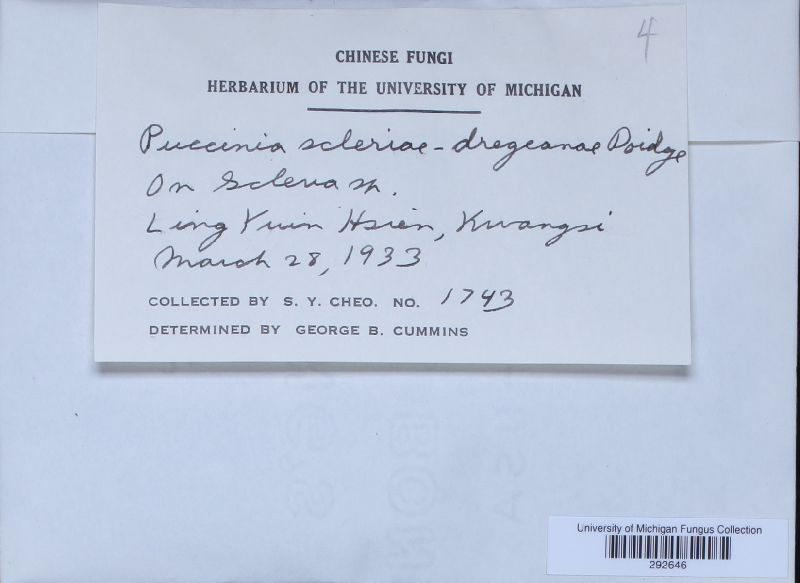 4
CHINESE FUNGI
HERBARIUM OF THE UNIVERSITY OF MICHIGAN
Puccinia scleriae-dregeanae Doidge
On Scleria sp.
Ling Yuin Hsien, Kwangsi
March 28, 1933
COLLECTED BY S. Y. CHEO. NO. 1743
DETERMINED BY GEORGE B. CUMMINS
University of Michigan Fungus Collection
292646